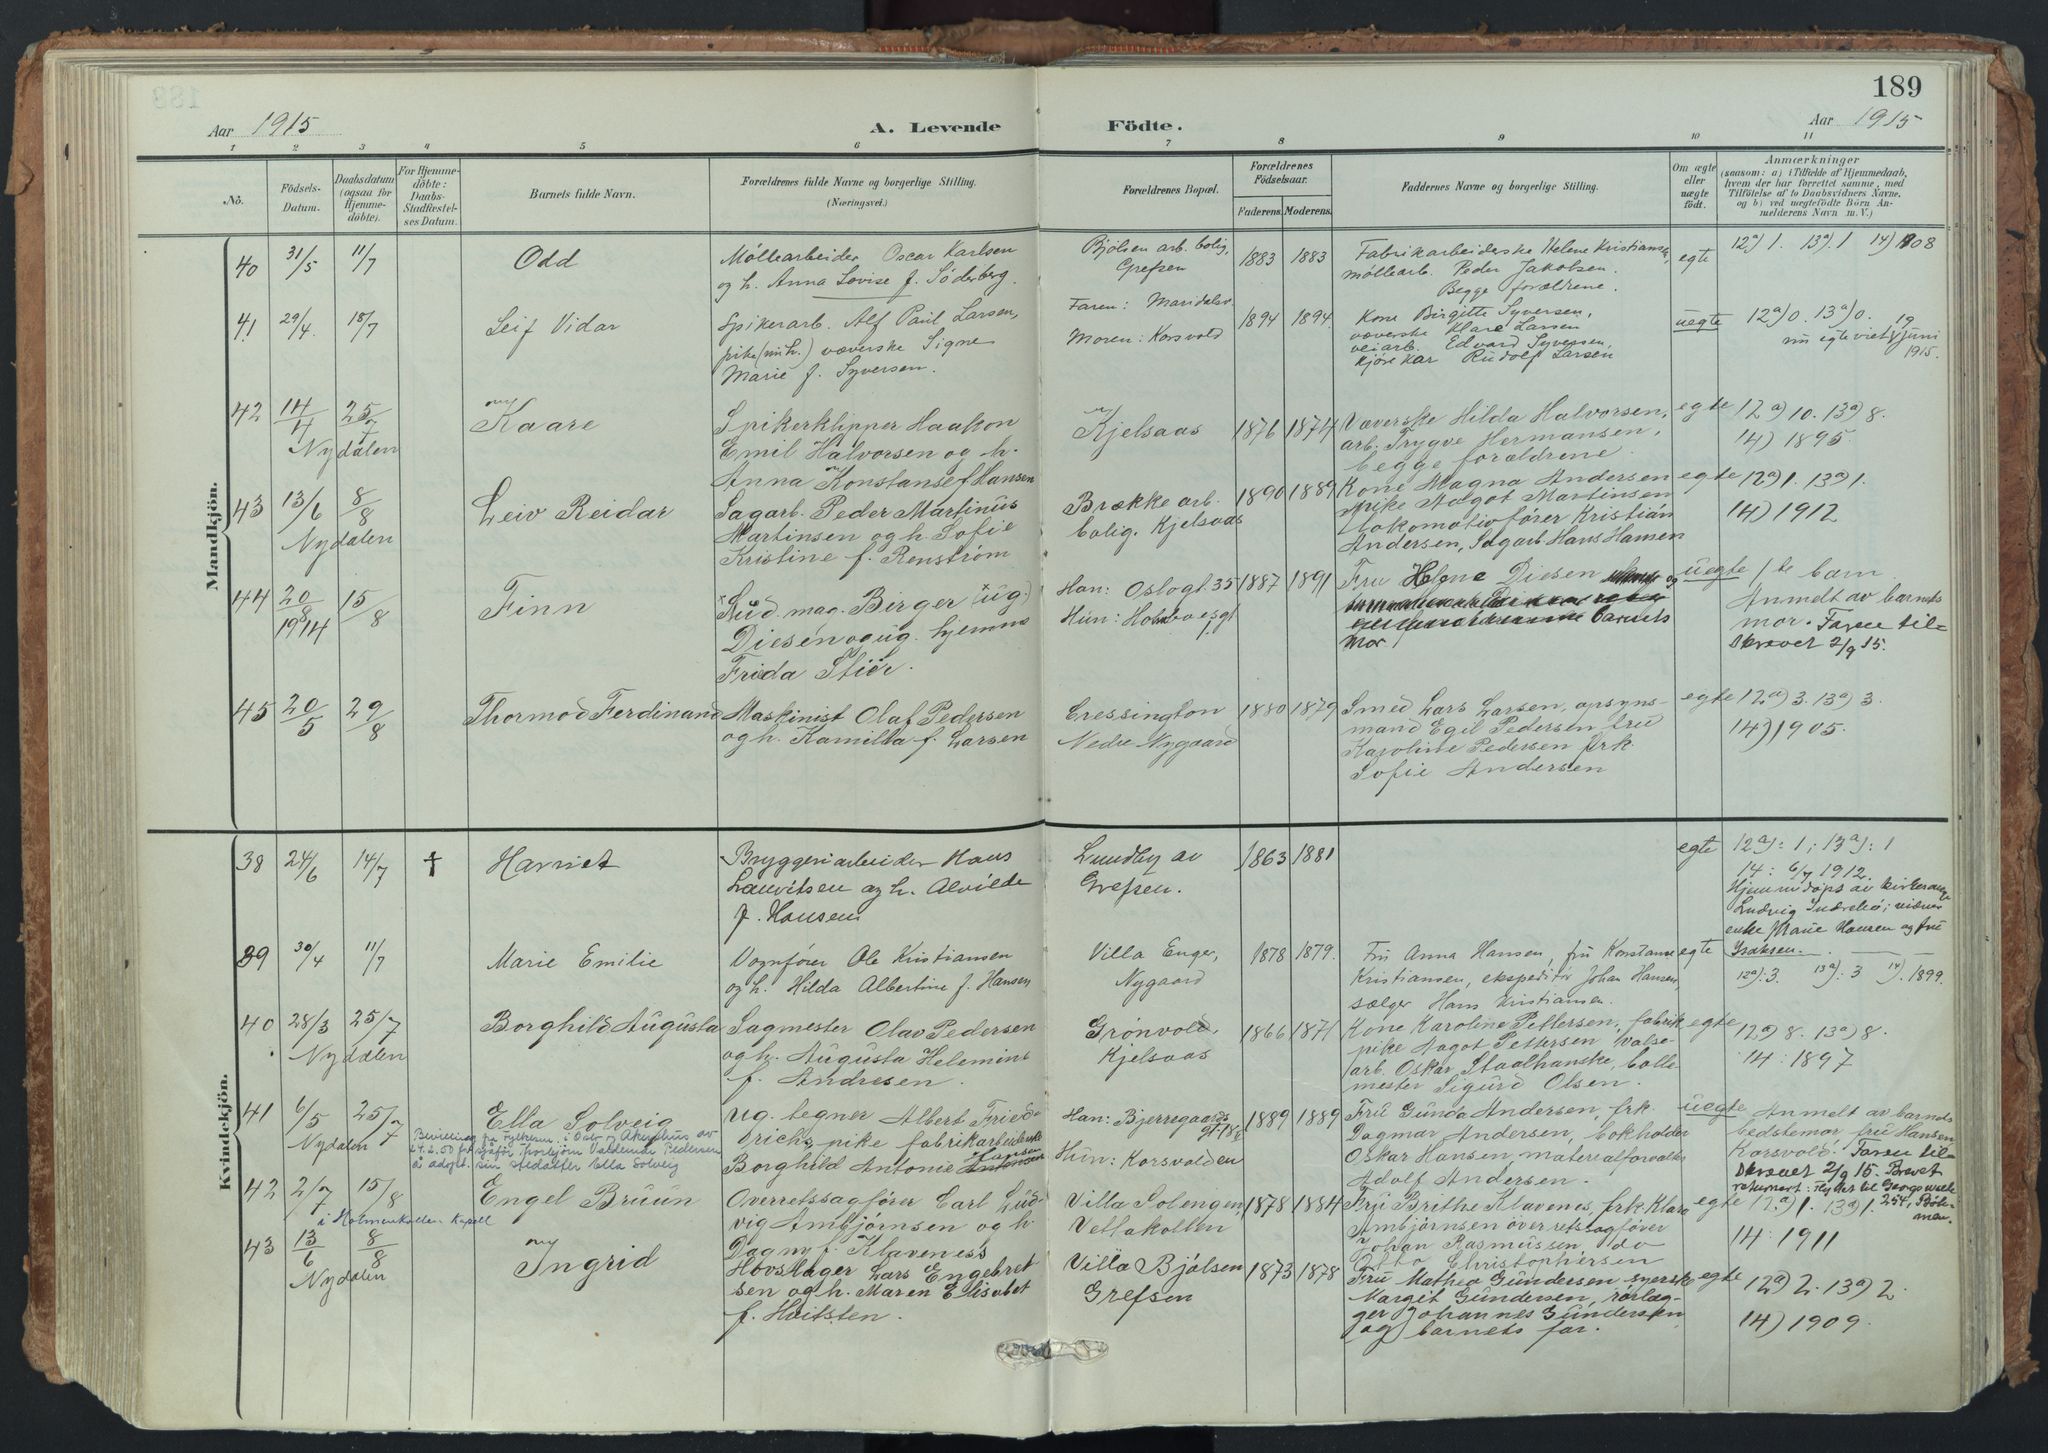 189
Aar 1915
A. Levende Födte.
Aar 1915
1 2 3 4 5 6 7 8 9 10 11
No.
Födsels-Datum.
Daabsdatum (ogsaa for Hjemmedöbte).
For Hjemmedöbte: Daabs-Stadfæstelses Datum.
Barnets fulde Navn.
Forældrenes fulde Navne og borgerlige Stilling.
(Næringsvei.)
Forældrenes Bopæl.
Forældrenes Födselsaar.
Faderens. Moderens.
Faddernes Navne og borgerlige Stilling.
Om ægte eller uægte födt.
Anmærkninger
(saasom: a) i Tilfælde af Hjemmedaab,
hvem der har forrettet samme, med
Tilföielse af to Daabsvidners Navne,
og b) ved uægtefödte Börn An-
melderens Navn m. V.)
Mandkjön.
40 31/5 11/7 Odd
Möllearbeider Oscar Karlsen
og h. Anna Lovise f. Söderberg.
Bjölsen arb. bolig,
Grefsen
1883 1883
Fabrikarbeiderske Helene Kristiansen,
möllearb. Peder Jakobsen.
Begge forældrene.
egte
12a) 1. 13a) 1 14) 1908
41. 29/4. 18/7 Leif Vidar
Spikerarb. Alf Paul Larsen,
pike (nu h.) væverske Signe
Marie f. Syversen.
Faren: Maridalsv.
Moren: Korsvold
1894 1894.
Kone Birgitte Syversen,
væverske Klara Larsen
veiarb. Edvard Syversen,
kjörekar Rudolf Larsen
uegte
12a) 0. 13a) 0.
nu egteviet 19 juni
1915.
42 14/4 25/7 Kaare
Nydalen
Spikerklipper Haakon
Emil Halvorsen og h.
Anna Konstanse f. Hansen
Kjelsaas
1876 1874
Væverske Hilda Halvorsen,
arb. Trygve Hermansen,
begge forældrene
egte
12a) 10. 13a) 8.
14) 1895.
43 13/6 8/8 Leiv Reidar
Nydalen
Sagarb. Peder Martinus
Martinsen og h. Sofie
Kristine f. Renström
Brække arb.
bolig. Kjelsaas
1890 1889
Kone Magna Andersen
pike Aagot Martinsen
Lokomotivförer Kristian
Andersen, Sagarb. Hans Hansen
egte
12a) 1. 13a) 1.
14) 1912
44 20/8 1914 15/8 Finn
Stud. mag. Birger (ug.)
Diesen og ug. hjemme
Frida Stiör.
Han: Oslogt 35
Hun: Holmboesgt
1887 1891
Fru Helene Diesen og
barnets
Mor.
uegte
1te barn
Anmelt av barnets
mor. Faren til-
skrevet 2/9 15.
45 20/5 29/8 Thormod Ferdinand
Maskinist Olaf Pedersen
og h. Kamilla f. Larsen
Cressington
Nedre Nygaard
1880 1879
Smed Lars Larsen, opsyns-
mand Egil Pedersen, fru
Karoline Pedersen frk.
Sofie Andersen
egte
12a) 3. 13a) 3
14) 1905.
Kvindekjön.
38 24/6 14/7 † Harriet
Bryggeriarbeider Hans
Lauritsen og h. Alvilde
f. Hansen
Lundby av
Grefsen.
1863 1881
egte
12a): 1; 13a): 1
14: 6/7 1912.
Hjemmedöps av kirkesanger
Ludvig Inderhö; vidner
enke Marie Hansen og fru
Isaksen.
39 30/4 11/7 Marie Emilie
Vognförer Ole Kristiansen
og h. Hilda Albertine f. Hansen
Villa Enger,
Nygaard
1878 1879.
Fru Anna Hansen, fru Konstanse
Kristiansen, ekspeditör Johan Hansen,
sælger Hans Kristiansen.
egte
12a): 3 13a): 3 14). 1899.
40 28/3 25/7 Borghild Augusta
Nydalen
Sagmester Olav Pedersen
og h. Augusta Helemine
f. Andresen.
Grönvold,
Kjelsaas
1866 1871
Kone Karoline Pettersen, fabrik
pike Aagot Pettersen, valse-
arb. Oskar Staalhanske, balle-
mester Sigurd Olsen.
egte
12a) 8. 13a) 8.
14: 1897
41 6/5 25/7 Ella Solveig
Nydalen
Bevilling fra Fylkesm. i Oslo og Akershus av
24.2.50 for sjåför Thorbjörn Valdemar Pedersen
å adopt. sin stedatter Ella Solveig
Ug. tegner Albert Fried-
richs, pike fabrikarbeiderske
Borghild Antonie Hansen
Han: Bjerregaards
gt. 18
Hun: Korsvolden
1889 1889
Fru Gunda Andersen, frk.
Dagmar Andersen, bokholder
Oskar Hansen, materialforvalter
Adolf Andersen.
uegte
Anmelt av barnets
bedstemor fru Hansen
Korsvold. Faren til-
skrevet 2/9 15. Brevet
returnert: Flyttet til
254,
42 2/7 15/8 Engel Bruun
i Holmenkollen Kapell
Overretssagförer Carl Lud-
vig Ambjörnsen og h.
Dagny f. Klaveness
Villa Solengen,
Vettakollen
1878 1884
Fru Brithe Klavenes, frk. Klara
Ambjörnsen overretssagförer
Johan Rasmussen do
Otto Christophersen
egte
12a) 1. 13a) 1.
14: 1911
43 13/6 8/8 Ingrid
Nydalen
Hovslager Lars Engebret
sen og h. Maren Elisabet
f. Hvitsten.
Villa Bjölsen
Grefsen
1873 1878
Fru Mathea Gundersen syerske
Margit Gundersen, rörlæg-
ger Johannes Gundersen
og barnets far.
egte
12a) 2. 13a) 2.
14) 1909.